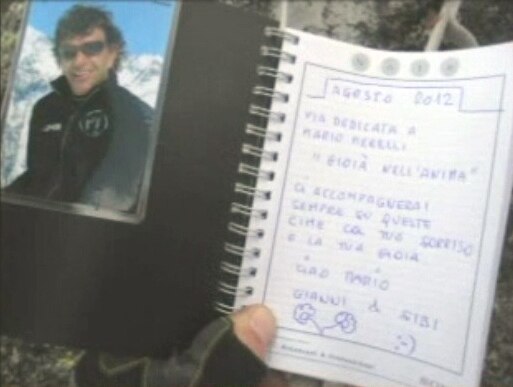 NOTE
AGOSTO 2012
VIA DEDICATA A
MARIO MERELLI
"GIOIA NELL'ANIMA"
CI ACCOMPAGNERAI
SEMPRE SU QUESTE
CIME COL TUO SORRISO
E LA TUA GIOIA
CIAO MARIO
GIANNI & SIBI
:-)